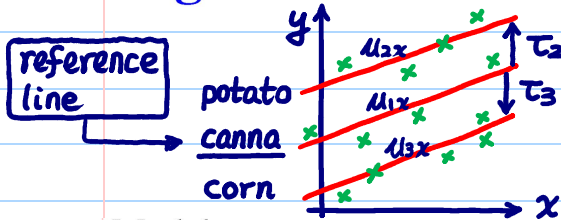 reference
line
y
potato
canna
corn
μ2x
μ1x
μ3x
τ2
τ3
x